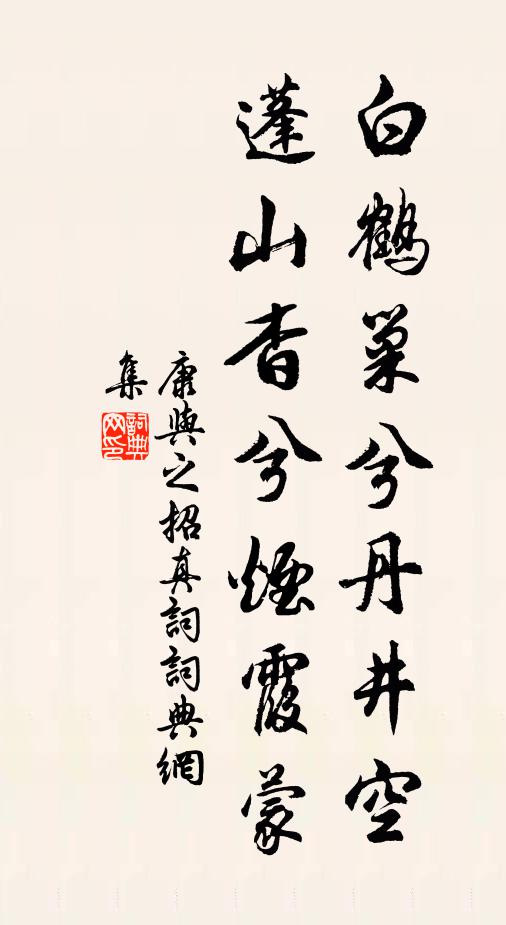 白鶴巢兮丹井空
蓬山杳兮煙霞蒙
康與之招真詞詞典網
集
詞典
网印